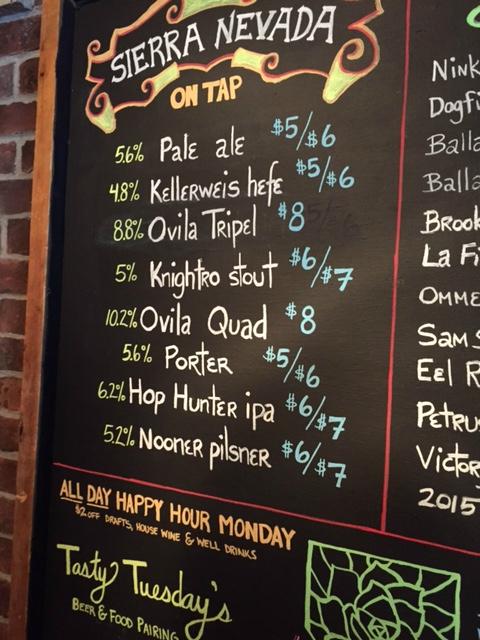 SIERRA NEVADA
ON TAP
5.6% Pale ale $5/$6
4.8% Kellerweis hefe $5/$6
8.8% Ovila Tripel $8
5% Knightro stout $6/$7
10.2% Ovila Quad $8
5.6% PORTER $5/$6
6.2% Hop Hunter ipa $6/$7
5.2% Nooner pilsner $6/$7
ALL DAY HAPPY HOUR MONDAY
$2 OFF DRAFTS, HOUSE WINE & WELL DRINKS
Tasty Tuesday's
BEER & FOOD PAIRING
Nink
Dogfi
Balla
Balla
Brook
La Fi
OMME
SAM S
EEL R
PETRUS
VICTORY
2015